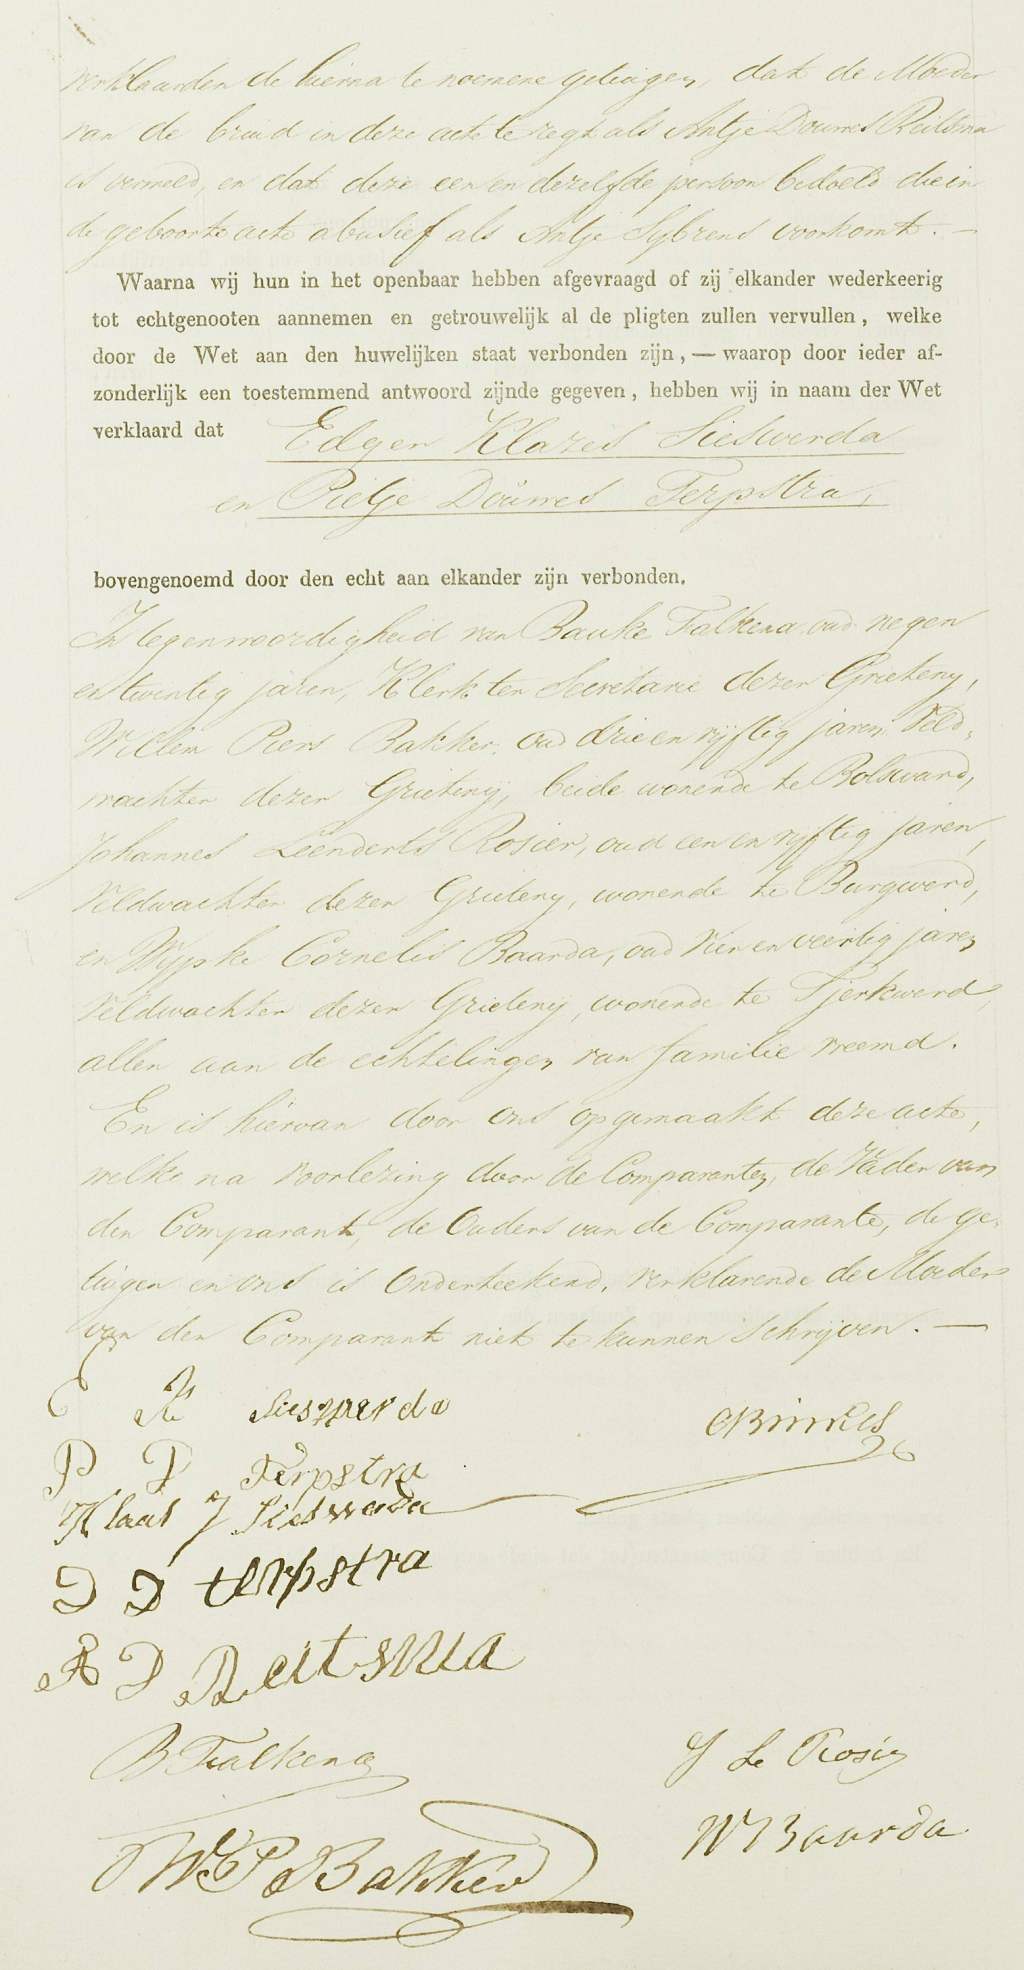 verklaarden de hierna te noemene getuigen, dat de Moeder
van de bruid in deze acte te regt als Antje Douwes Reitsma
is vermeld, en dat deze een en dezelfde persoon bedoeld die in
de geboorte acte abusief als Antje Sybrens voorkomt. —
Waarna wij hun in het openbaar hebben afgevraagd of zij elkander wederkeerig
tot echtgenooten aannemen en getrouwelijk al de pligten zullen vervullen, welke
door de Wet aan den huwelijken staat verbonden zijn, — waarop door ieder af-
zonderlijk een toestemmend antwoord zijnde gegeven, hebben wij in naam der Wet
verklaard dat Edger Klazes Sieswerda
en Pietje Douwes Terpstra,
bovengenoemd door den echt aan elkander zijn verbonden.
In tegenwoordigheid van Bauke Falkena, oud negen
en twintig jaren, Klerk ter Secretarie dezer Grieteny,
Willem Piers Bakker, oud drie en vyftig jaren, Veld-
wachter dezer Grieteny, beide wonende te Bolsward,
Johannes Leenderts Rosier, oud een en vyftig jaren,
Veldwachter dezer Grieteny, wonende te Burgwerd,
en Wypke Cornelis Baarda, oud vier en veertig jaren
Veldwachter dezer Grieteny, wonende te Tjerkwerd,
allen aan de echtelingen van familie vreemd.
En is hiervan door ons opgemaakt deze acte,
welke na voorlezing door de Comparanten, de Vader van
den Comparant, de Ouders van de Comparante, de ge-
tuigen en ons is Onderteekend, verklarende de Moeder
van den Comparant niet te kunnen schrijven. —
E K Sieswerda
CBinkes
P D Terpstra
Klaas J Sieswerda
D D terpstra
A D Reitsma
B Falkena
J Le Rosier
W P Bakker
W Baarda